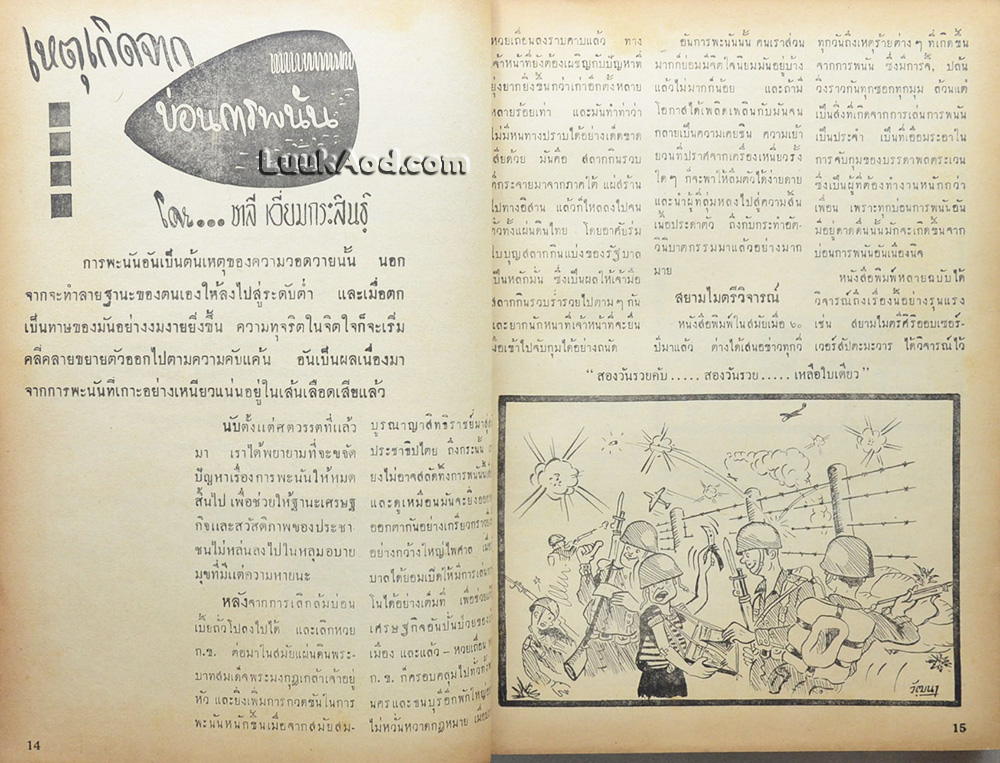 เหตุเกิดจาก
บ่อนการพนัน
LuukAod.com
โดย... ชาลี เอี่ยมกระสินธุ์
การพะนันอันเป็นต้นเหตุของความวอดวายนั้น นอก
จากจะทำลายฐานะของตนเองให้ลงไปสู่ระดับต่ำ และเมื่อตก
เป็นทาษของมันอย่างงมงายยิ่งขึ้น ความทุจริตในจิตใจก็จะเริ่ม
คลี่คลายขยายตัวออกไปตามความคับแค้น อันเป็นผลเนื่องมา
จากการพะนันที่เกาะอย่างเหนียวแน่นอยู่ในเส้นเลือดเสียแล้ว
นับตั้งแต่ศตวรรตที่แล้ว
มา เราได้พยายามที่จะขจัด
ปัญหาเรื่องการพะนันให้หมด
สิ้นไป เพื่อช่วยให้ฐานะเศรษฐ
กิจและสวัสดิภาพของประชา
ชนไม่หล่นลงไปในหลุมอบาย
มุขที่มีแต่ความหายนะ
หลังจากการเลิกล้มบ่อน
เบี้ยถั่วโปลงไปได้ และเลิกหวย
ก.ข. ต่อมาในสมัยแผ่นดินพระ-
บาทสมเด็จพระมงกุฎเกล้าเจ้าอยู่
หัว และยิ่งเพิ่มการกวดขันในการ
พะนันหนักขึ้นเมื่อจากสมัยสม-
บูรณาญาสิทธิราชย์มาสู่
ประชาธิปไตย ถึงกระนั้น
ยังไม่อาจสลัดทิ้งการพนันนั้น
และดูเหมือนมันจะยิ่งออก
ออกตากันอย่างเกรียวกราว
อย่างกว้างใหญ่ไพศาล
บาลได้ยอมเปิดให้มีการเล่น
โนได้อย่างเต็มที่ เพื่อช่วย
เศรษฐกิจอันปั่นป่วยของ
เมือง และแล้ว – หวยเถื่อน
ก. ข. ก็ครอบคลุมไปทั่วทั้ง
นครและชนบูรีอีกพักใหญ่
ไม่หวั่นหวาดกฎหมาย เมื่อ
14
หวยเถื่อนลงราบคาบแล้ว ทาง
เจ้าหน้าที่ยังต้องเผชิญกับปัญหาที่
ยุ่งยากยิ่งขึ้นกว่าเก่าอีกตั้งหลาย
หลายร้อยเท่า และมันทำท่าว่า
ไม่มีหนทางปราบได้อย่างเด็ดขาด
เสียด้วย มันคือ สลากกินรวบ
ที่กระจายมาจากภาคใต้ แผ่สร้าน
ไปทางอีสาน แล้วก็ไหลลงไปจน
ทั่วทั้งแผ่นดินไทย โดยอาศัยรม
ใบบุญสลากกินแบ่งของรัฐบาล
เป็นหลักมั่น ซึ่งเป็นผลให้เจ้ามือ
สลากกินรวบร่ำรวยไปตาม ๆ กัน
และยากนักหนาที่เจ้าหน้าที่จะยื่น
มือเข้าไปจับกุมได้อย่างถนัด
อันการพะนันนั้น คนเราส่วน
มากก็ย่อมมีจิตใจนิยมมันอยู่บ้าง
แล้วไม่มากก็น้อย และถ้ามี
โอกาสได้เพลิดเพลินกับมันจน
กลายเป็นความเคยชิน ความเย้า
ยวนที่ปราศจากเครื่องเหนี่ยวรั้ง
ใด ๆ ก็จะพาให้ลืมตัวได้ง่ายดาย
และนำผู้ที่ลุ่มหลงไปสู่ความสิ้น
เนื้อประดาตัว ถึงกับกระทำอัต-
วินิบาตกรรมมาแล้วอย่างมาก
มาย
สยามไมตรีวิจารณ์
หนังสือพิมพ์ในสมัยเมื่อ ๖๐
ปีมาแล้ว ต่างได้เสนอข่าวทุกวี่
ทุกวันถึงเหตุร้ายต่าง ๆ ที่เกิดขึ้น
จากการพนัน ซึ่งมีการจี้, ปล้น
วิ่งราวกันทุกซอกทุกมุม ล้วนแต่
เป็นสิ่งที่เกิดจากการเล่นการพนัน
เป็นประจำ เป็นที่เอือมระอาใน
การจับกุมของบรรดาพลตระเวน
ซึ่งเป็นผู้ที่ต้องทำงานหนักกว่า
เพื่อน เพราะทุกบ่อนการพนันอัน
มีอยู่ดาดดื่นนั้นมักจะเกิดขึ้นจาก
บ่อนการพนันอันเนืองนิจ
หนังสือพิมพ์หลายฉบับได้
วิจารณ์ถึงเรื่องนี้อย่างรุนแรง
เช่น สยามไมตรีศิริออบเซอร์-
เวอร์สัปตะมะวาร ได้วิจารณ์ไว้
“สองวันรวยคับ..... สองวันรวย..... เหลือใบเดียว”
วัฒนา
15